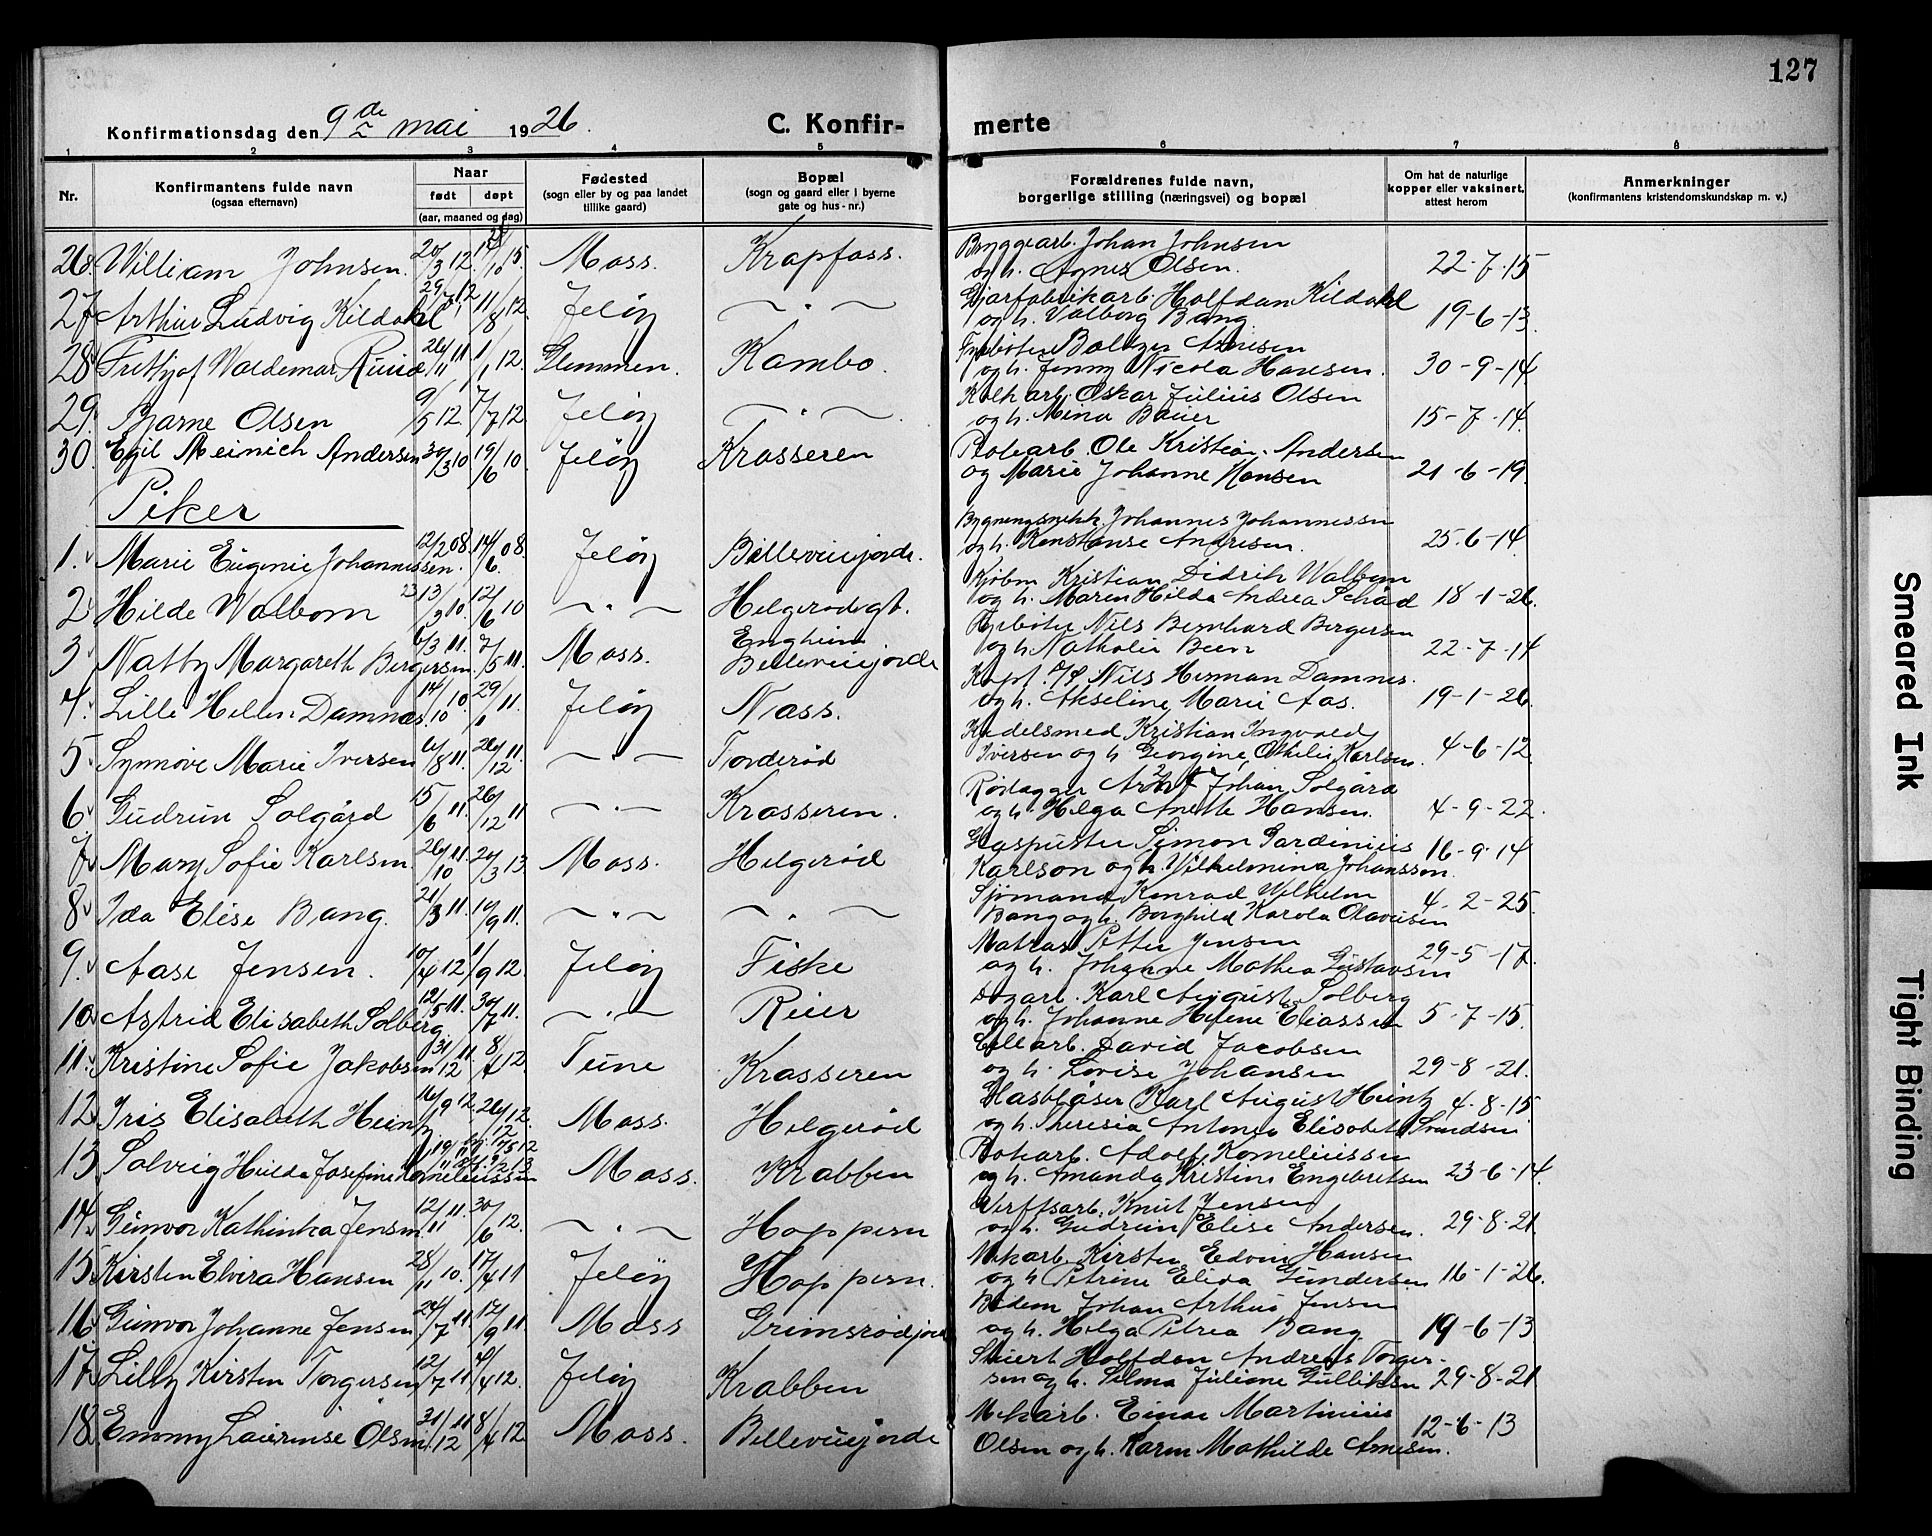 127
Konfirmationsdag den 9de mai 1926. C. Konfir- merte
1 2 3 4 5 6 7 8
Nr. Konfirmantens fulde navn (ogsaa efternavn) Naar født døpt (aar, maaned og dag) Fødested (sogn eller by og paa landet tillike gaard) Bopæl (sogn og gaard eller i byerne gate og hus-nr.) Forældrenes fulde navn, borgerlige stilling (næringsvei) og bopæl Om hat de naturlige kopper eller vaksinert, attest herom Anmerkninger (konfirmantens kristendomskundskap m. v.)
26. William Johnsen. 20/3 12. Moss. Krapfoss. Bryggearb. Johan Johnsen og h. Agnes Olsen. 22-7-15
27 Arthur Ludvig Kildahl 29/7 12 11/8 12. Jeløy — " — Halfdan Kildahl og h. Valborg Bang 19-6-13.
28 Frithjof Valdemar 26/11 11 1/1 12. Glemmen. Kambo. Fyrbøter og h. Jenny Nicola Hansen. 30-9-14
29. Bjarne Olsen 9/5 12. 7/7 12 Jeløy — " — Oskar Julius Olsen og h. Mina 15-7-14.
30. Egil Meinich Andersen 30/3 10 19/6 10 Jeløy Krasseren Ole Kristian Andersen og Marie Johanne Hansen 21-6-19.
Piker
1. Marie Eugenie Johannessen. 12/2 08. 14/6 08. Jeløy Bellevuejorde. Bygningssnekk. Johannes Johannessen og h. Konstanse Andresen. 25-6-14.
2 Hilde Walbom 13/3 10. 12/6 10 — " — Helgerødgt. Kjøbm Kristian Didrik Walbom og h. Maren Hilda Andrea Schåd 18-1-26.
3. Natty Margareth Bergersen. 6/3 11. 7/5 11. Moss. Engheim Bellevuejorde Fyrbøter Nils Bernhard Bergersen og h. Nathalie 22-7-14
4. Lille Hellen Damnæs. 14/10 10. 29/1 11. Jeløy Næss. Nils Herman Damnes. og h. Akseline Marie Aas. 19-1-26.
5 Synnøve Marie Iversen 6/8 11. 26/12 11. — " — Torderød Kjedelsmed Kristian Ingvald Iversen og h Georgine, Othilie Karlsen. 4-6-12.
6. Gudrun Solgård 15/6 11. 26/12 11 — " — Krasseren. Johan Solgård og h. Helga Anette Hansen. 4-9-22.
7 Mary Sofie Karlsen 26/10 11. 24/3 13. Moss. Helgerød Glaspuster Simon Gardinius Karlson og h. Vilhelmina Johansson. 16-9-14
8 Ida Elise Bang. 21/3 11. 10/9 11. — " — — " — Sjømand Konrad Vilhelm Bang og h. Borghild Karola Olavesen 4-2-25.
9. Aase Jensen. 10/4 12 1/9 12. Jeløy Fiske Matros Petter Jensen og h. Johanne Mathea Gustavsen 29-5-17.
10. Astrid Elisabeth Solberg. 12/5 11. 30/7 11. — " — Reier Karl August Solberg og h. Johanne Helene Eliassen 5-7-15.
11. Kristine Sofie Jakobsen 31/12 11. 8/4 12. Tune Krasseren Cellearb. David Jacobsen og h. Lovise Johansen 29-8-21.
12 Iris Elisabeth Heintz 16/9 12. 26/12 12. Moss. Helgerød Glasblåser Karl August Heintz og h. Theresia Antonia Elisabeth Svendsen 4-8-15
13 Solveig Hulda Josefine Korneliussen Moss. Krabben Adolf Korneliussen og h. Amanda Kristine Engebretsen 23-6-14.
14. Gunvor Kathinka Jensen. 12/11 11. 30/6 12. — " — Hoppern Verftsarb. Knut Jensen og h. Gudrun Elise Andersen. 29-8-21.
15. Kirsten Elvira Hansen 28/11 10. 17/4 11 Jeløy Hoppern. Mekarb. Kirsten Edvin Hansen og h Petrine Elida Gundersen 16-1-26.
16. Gunvor Johanne Jensen 24/7 11 17/9 11. Moss Grimsrødjorde Johan Arthur Jensen og h. Helga Petrea Bang 19-6-13
17. Lilly Kirsten Torgersen 12/7 11 4/4 12. Jeløy Krabben Halfdan Andreas Torgersen og h. Selma Juliane Gulliksen 29-8-21
18. Emmy Laurense Olsen. 31/12 11 8/4 12 Moss. Bellevuejorde Mekarb. Einar Martinius Olsen og h. Karen Mathilde Arnesen. 12-6-13
Smeared Ink
Tight Binding